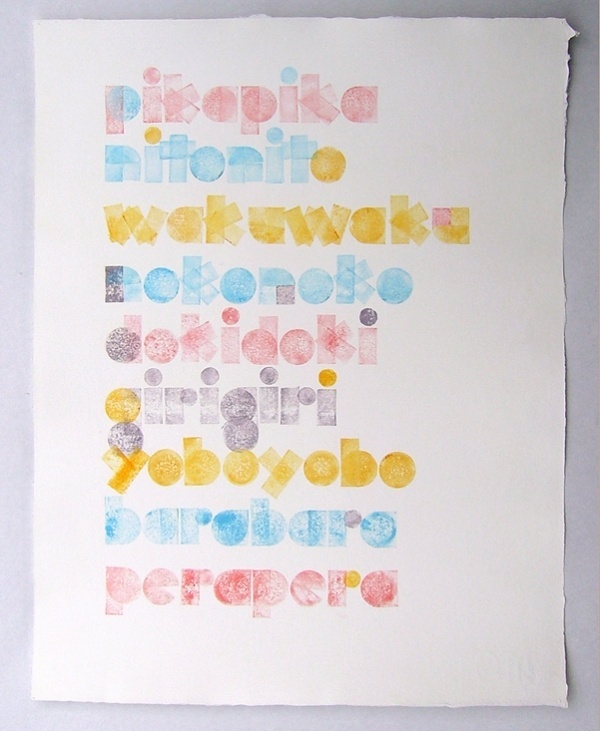 pikapika
nitonito
wakuwaku
nokonoko
dokidoki
girigiri
yoboyobo
barabara
perapera